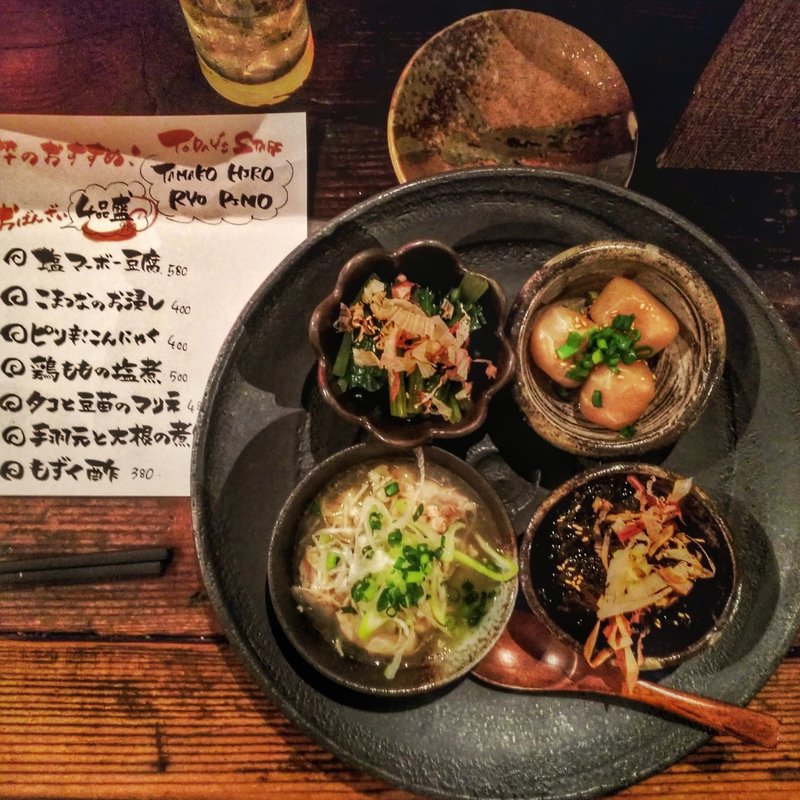 のおすすめ!
TODAY'S STAFF
TAMAKO HIRO
RYO PINO
おばんざい 4品盛り
塩マーボー豆腐 580
こまつなのお浸し 400
ピリ辛!こんにゃく 400
鶏ももの塩煮 500
タコと豆苗のマリネ
手羽元と大根の煮
もずく酢 380